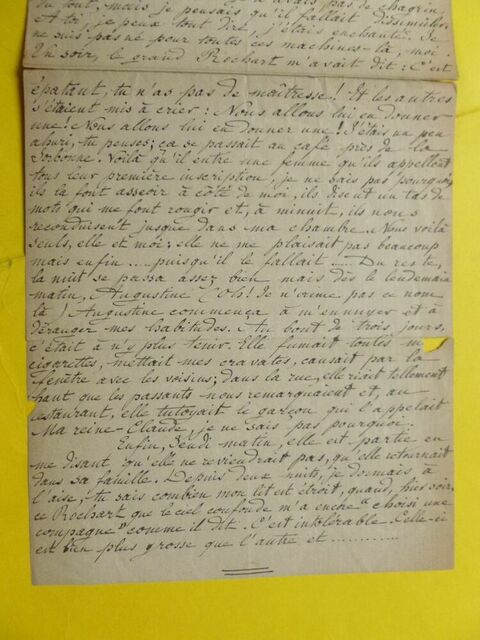 du tout, mais je pensais qu'il fallait dissimuler.
A toi, je peux tout dire, j'étais enchanté. Je
ne suis pas né pour toutes ces machines-là, moi.
Un soir, le grand Rochart m'avait dit : C'est
épatant, tu n'as pas de maîtresse ! Et les autres
s'étaient mis à crier : Nous allons lui en donner
une ! Nous allons lui en donner une ! J'étais un peu
ahuri, tu penses ; ça se passait au café près de la
Sorbonne. Voilà qu'il entre une femme qu'ils appellent
tous leur première inscription, je ne sais pas pourquoi,
ils la font asseoir à côté de moi, ils disent un tas de
mots qui me font rougir et, à minuit, ils nous
reconduisent jusque dans ma chambre. Nous voilà
seuls, elle et moi ; elle ne me plaisait pas beaucoup
mais enfin .... puisqu'il le fallait .... Du reste,
la nuit se passa assez bien mais dès le lendemain
matin, Augustine (Oh ! Je n'aime pas ce nom
là) Augustine commença à m'ennuyer et à
déranger mes habitudes. Au bout de trois jours,
c'était à n'y plus tenir. Elle fumait toutes mes
cigarettes, mettait mes cravates, causait par la
fenêtre avec les voisins ; dans la rue, elle riait tellement
haut que les passants nous remarquaient et, au
restaurant, elle tutoyait le garçon qui l'appelait
Ma reine-Claude, je ne sais pas pourquoi.
Enfin, Jeudi matin, elle est partie en
me disant qu'elle ne reviendrait pas, qu'elle retournait
dans sa famille. Depuis deux nuits, je dormais à
l'aise, tu sais combien mon lit est étroit, quand, hier soir,
ce Rochart que le ciel confonde m'a encore "choisi une
compagne" comme il dit. C'est intolérable. Celle-ci
est bien plus grosse que l'autre et ............